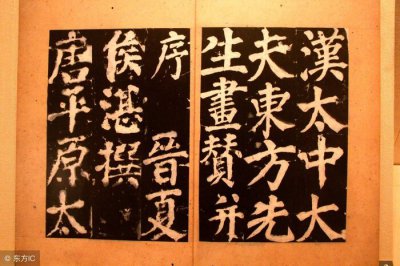 漢太中大
夫東方先
生畫贊并
序 晉夏
侯湛撰
唐平原太
东方IC